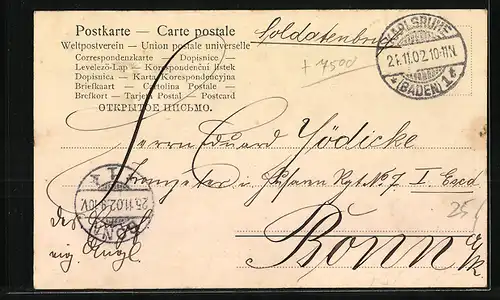 Postkarte — Carte postale
Weltpostverein – Union postale universelle
Correspondenzkarte – Dopisnice
Levelező-Lap – Korespondenční lístek
Dopisnica – Karta Korespondencyjna
Briefkaart – Cartolina Postale –
Brefkort – Tarjeta Postal – Postcard
ОТКРЫТОЕ ПИСЬМО.
Soldatenbrief
+ 4500
KARLSRUHE
21.11.02.10-11N
* (BADEN) 1 *
Herrn Eduard Jödicke
Rgt. No 7 I. Escd
25
Bonn a/R.
BONN
25.11.02.9-10V.
* 1 *